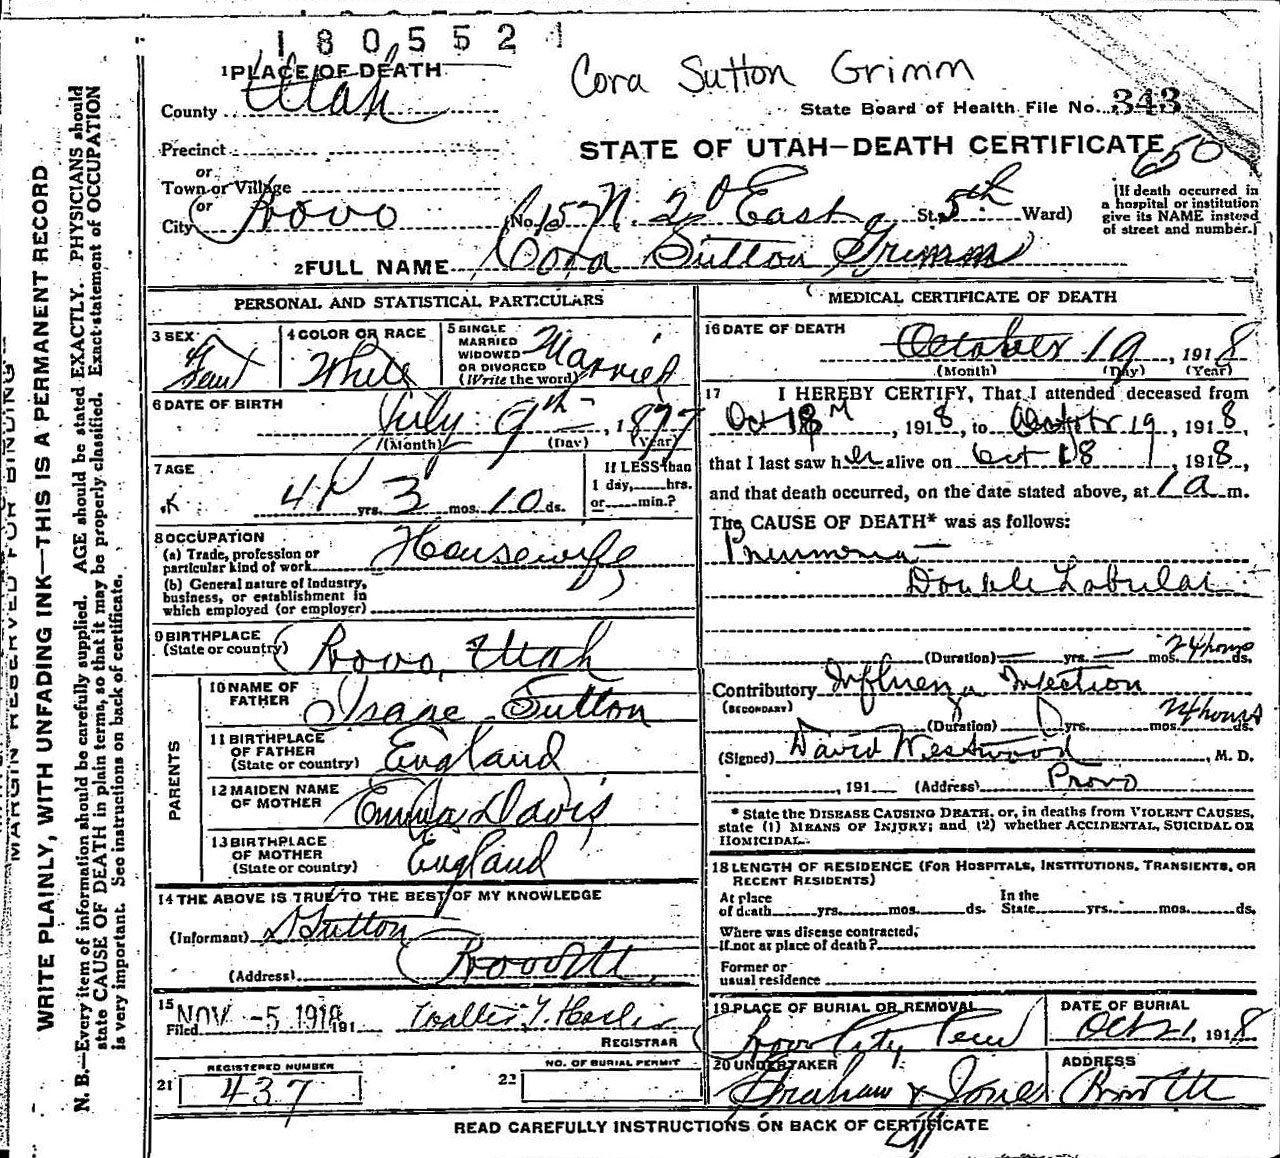 1 8 0 5 5 2 1
Cora Sutton Grimm
1 PLACE OF DEATH
County Utah
State Board of Health File No. 343
Precinct
STATE OF UTAH—DEATH CERTIFICATE
650
or
Town or Village
or
City Provo
(No. 157 N. 2d East St. 5th Ward)
(If death occurred in
a hospital or institution
give its NAME instead
of street and number.)
2 FULL NAME Cora Sutton Grimm
PERSONAL AND STATISTICAL PARTICULARS
3 SEX
Fem
4 COLOR OR RACE
White
5 SINGLE
MARRIED
WIDOWED
OR DIVORCED
(Write the word)
Married
6 DATE OF BIRTH
July 9th, 1877
(Month) (Day) (Year)
7 AGE
41 yrs. 3 mos. 10 ds.
If LESS than
1 day, hrs.
or min.?
8 OCCUPATION
(a) Trade, profession or
particular kind of work Housewife
(b) General nature of Industry,
business, or establishment in
which employed (or employer)
9 BIRTHPLACE
(State or country) Provo, Utah
PARENTS
10 NAME OF
FATHER Isaac Sutton
11 BIRTHPLACE
OF FATHER
(State or country) England
12 MAIDEN NAME
OF MOTHER Emma Davis
13 BIRTHPLACE
OF MOTHER
(State or country) England
14 THE ABOVE IS TRUE TO THE BEST OF MY KNOWLEDGE
(Informant) Sutton
(Address) Provo Ut
15
Filed NOV -5 1918 191
Walter T. Hasler
REGISTRAR
REGISTERED NUMBER
21 437
NO. OF BURIAL PERMIT
22
MEDICAL CERTIFICATE OF DEATH
16 DATE OF DEATH
October 19, 1918
(Month) (Day) (Year)
17 I HEREBY CERTIFY, That I attended deceased from
Oct 18, 1918, to October 19, 1918,
that I last saw her alive on Oct 18, 1918,
and that death occurred, on the date stated above, at 1 a m.
The CAUSE OF DEATH* was as follows:
Pneumonia
Double Lobular
(Duration) yrs. mos. 24 hours ds.
Contributory Influenza Infection
(SECONDARY)
(Duration) yrs. mos. 24 hours ds.
(Signed) David Westwood, M. D.
, 191 (Address) Provo
* State the DISEASE CAUSING DEATH, or, in deaths from VIOLENT CAUSES,
state (1) MEANS OF INJURY; and (2) whether ACCIDENTAL, SUICIDAL OR
HOMICIDAL.
18 LENGTH OF RESIDENCE (FOR HOSPITALS, INSTITUTIONS, TRANSIENTS, OR
RECENT RESIDENTS)
At place
of death yrs. mos. ds.
In the
State yrs. mos. ds.
Where was disease contracted,
If not at place of death?
Former or
usual residence
19 PLACE OF BURIAL OR REMOVAL
Provo City Cem
DATE OF BURIAL
Oct 21, 1918
20 UNDERTAKER
Graham & Jones
ADDRESS
Provo Ut
READ CAREFULLY INSTRUCTIONS ON BACK OF CERTIFICATE
MARGIN RESERVED FOR BINDING
WRITE PLAINLY, WITH UNFADING INK—THIS IS A PERMANENT RECORD
N. B.—Every item of information should be carefully supplied. AGE should be stated EXACTLY. PHYSICIANS should
state CAUSE OF DEATH in plain terms, so that it may be properly classified. Exact statement of OCCUPATION
is very important. See instructions on back of certificate.